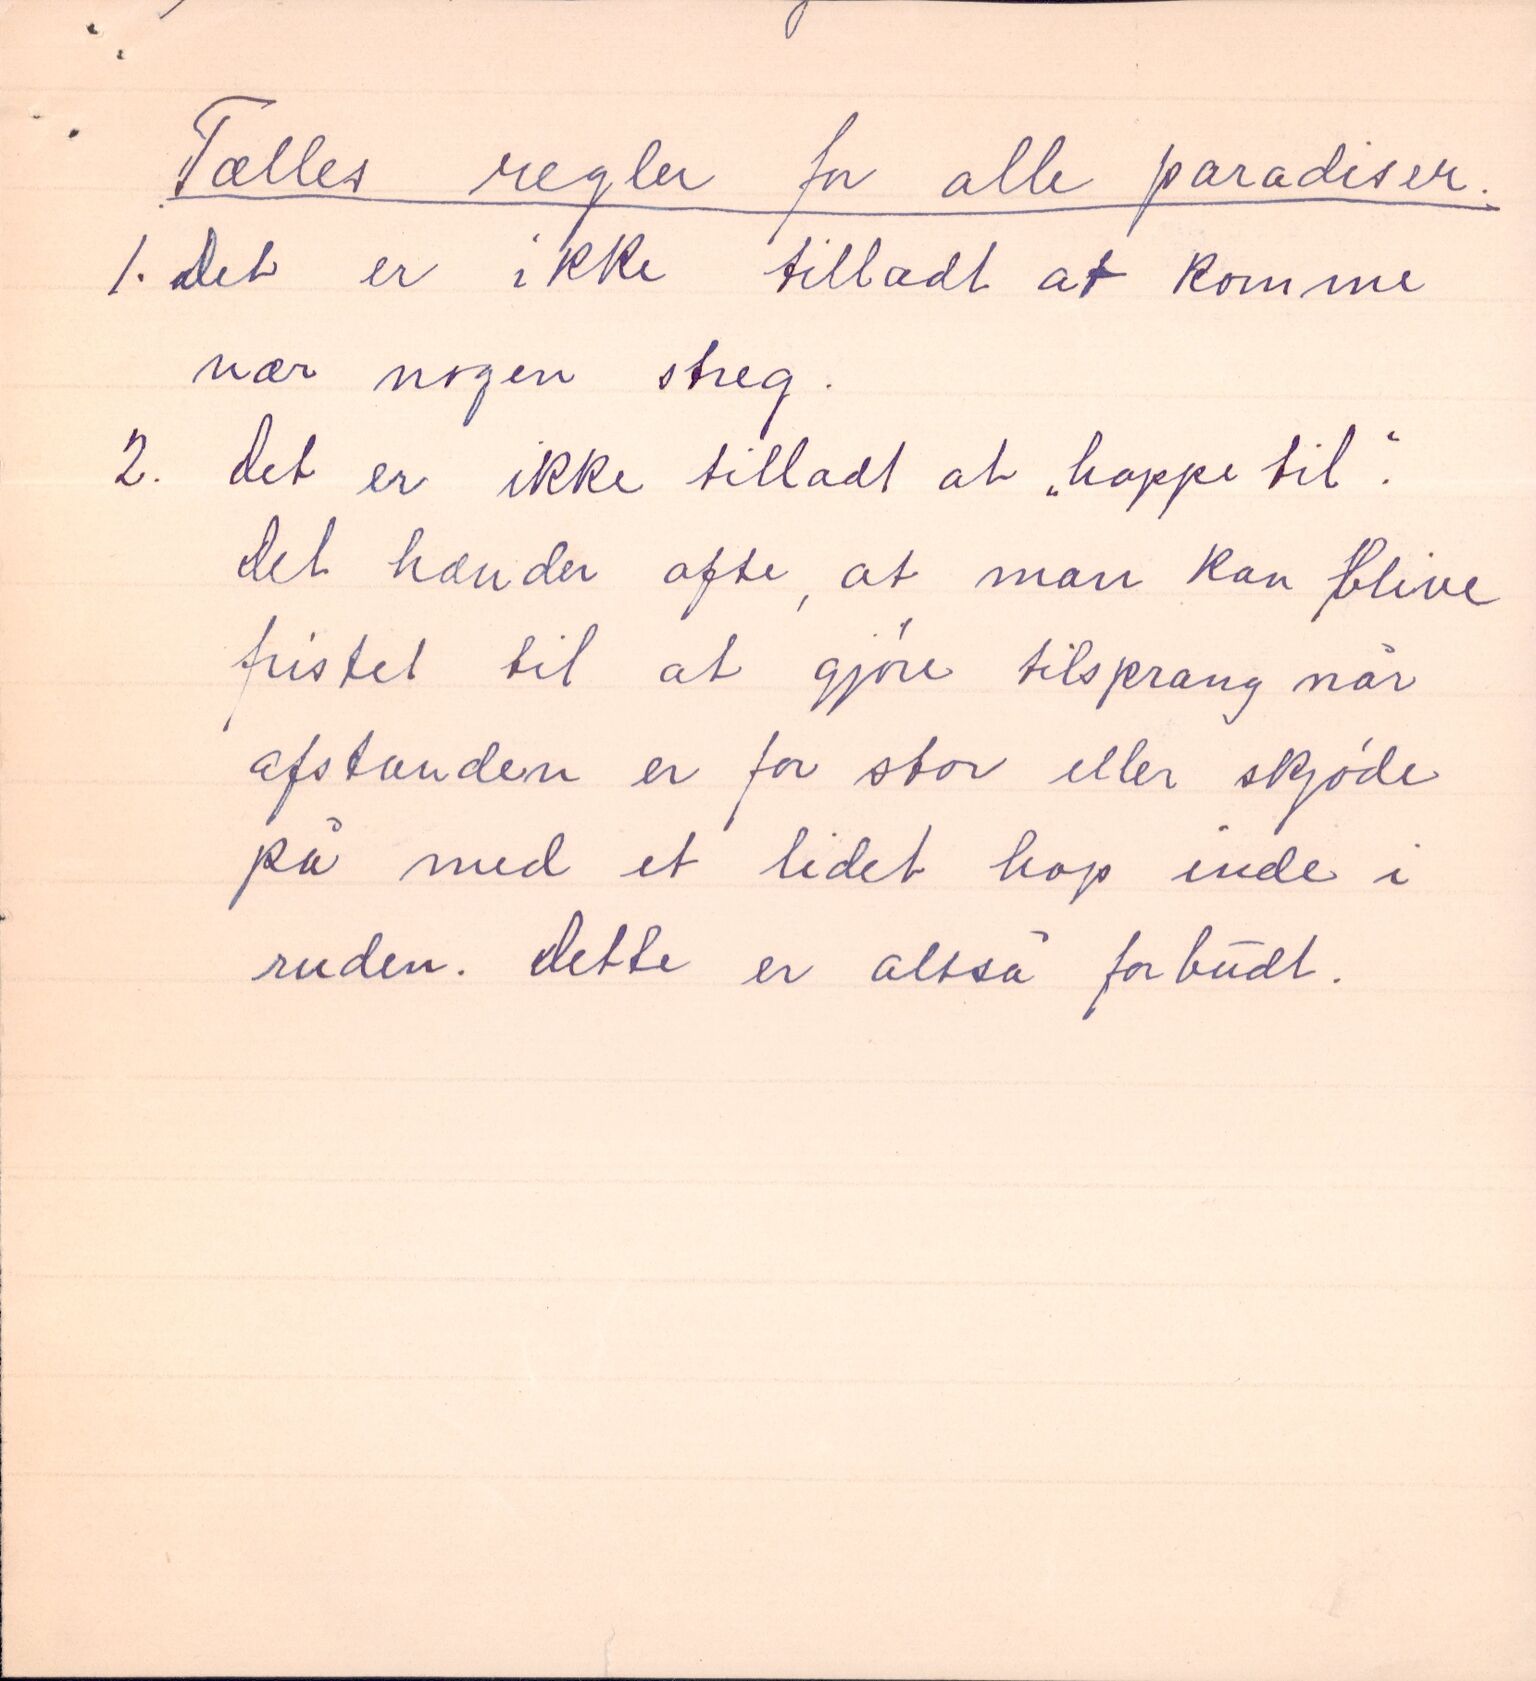 Fælles regler for alle paradiser.
1. Det er ikke tilladt at komme
nær nogen streg.
2. Det er ikke tilladt at „hoppe til“.
Det hænder ofte, at man kan blive
fristet til at gjöre tilsprang når
afstanden er for stor eller skjöde
på med et lidet hop inde i
ruden. Dette er altså forbudt.